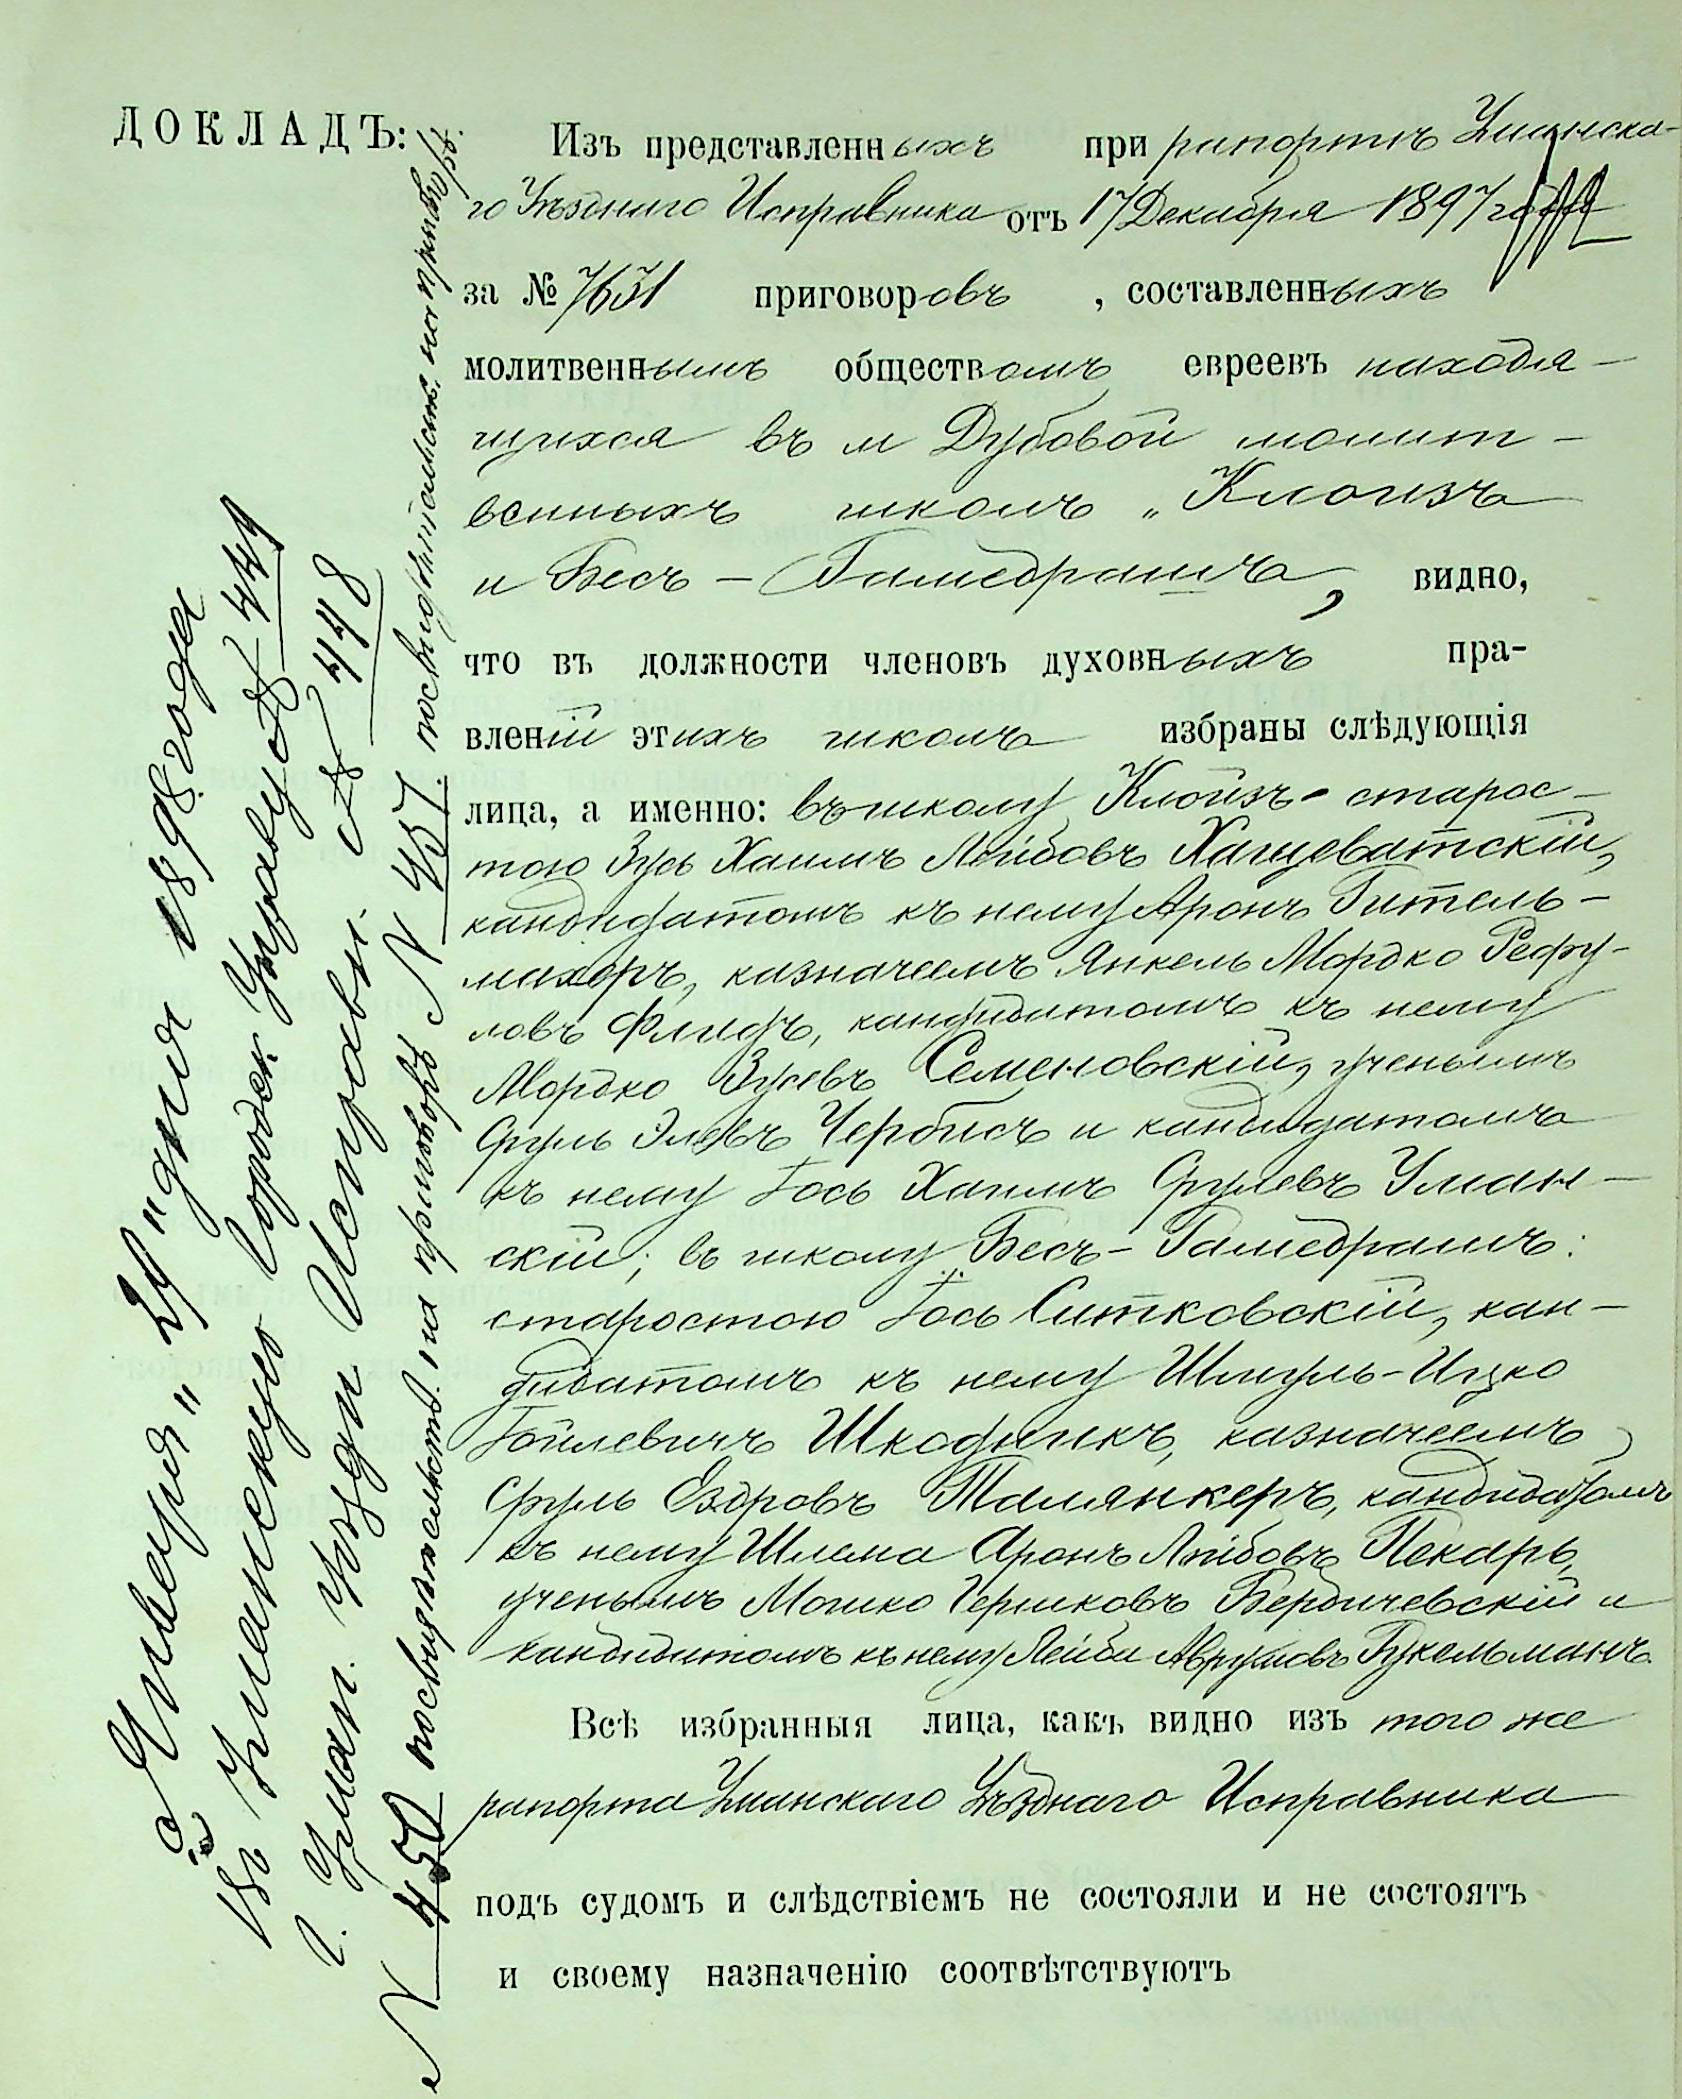 ДОКЛАДЪ:
Изъ представленныхъ при рапортѣ Уманска-
го Уѣзднаго Исправника отъ 17 Декабря 1897 года
за № 7631 приговоровъ, составленныхъ
молитвеннымъ обществомъ евреевъ находя-
щихся въ м Дубовой молит-
венныхъ школъ „Клоизъ
и Бесъ-Гамедрашъ, видно,
что въ должности членовъ духовныхъ пра-
вленій этихъ школъ избраны слѣдующія
лица, а именно: въ школу Клойзъ - старос-
тою Зусь Хаимъ Лейбовъ Хащеватскій,
кандидатомъ къ нему Аронъ Гитель-
махеръ, казначеемъ Янкель Мордко Рефу-
ловъ Флидъ, кандидатомъ къ нему
Мордко Зусевъ Семеновскій, ученымъ
Сруль Элевъ Чербисъ и кандидатомъ
къ нему Іось Хаимъ Срулевъ Уман-
скій; въ школу Бесъ-Гамедрашъ:
старостою Іось Ситковскій, кан-
дидатомъ къ нему Шмуль-Ицко
Іойлевичъ Шкодникъ, казначеемъ
Сруль Ездровъ Талянкеръ, кандидатомъ
къ нему Шлема Аронъ Лейбовъ Пекарь,
ученымъ Мошко Гершковъ Бердичевскій и
кандидатомъ къ нему Лейба Аврумовъ Гукельманъ.
Всѣ избранныя лица, какъ видно изъ того же
рапорта Уманскаго Уѣзднаго Исправника
подъ судомъ и слѣдствіемъ не состояли и не состоятъ
и своему назначенію соотвѣтствуютъ
Января „29" дня 1898 года
Въ Уманскую Городск. Управу № 449
г. Уман. Уѣздн. Исправн. № 448
№ 450 посвидѣтельств. на приговорѣ № 457